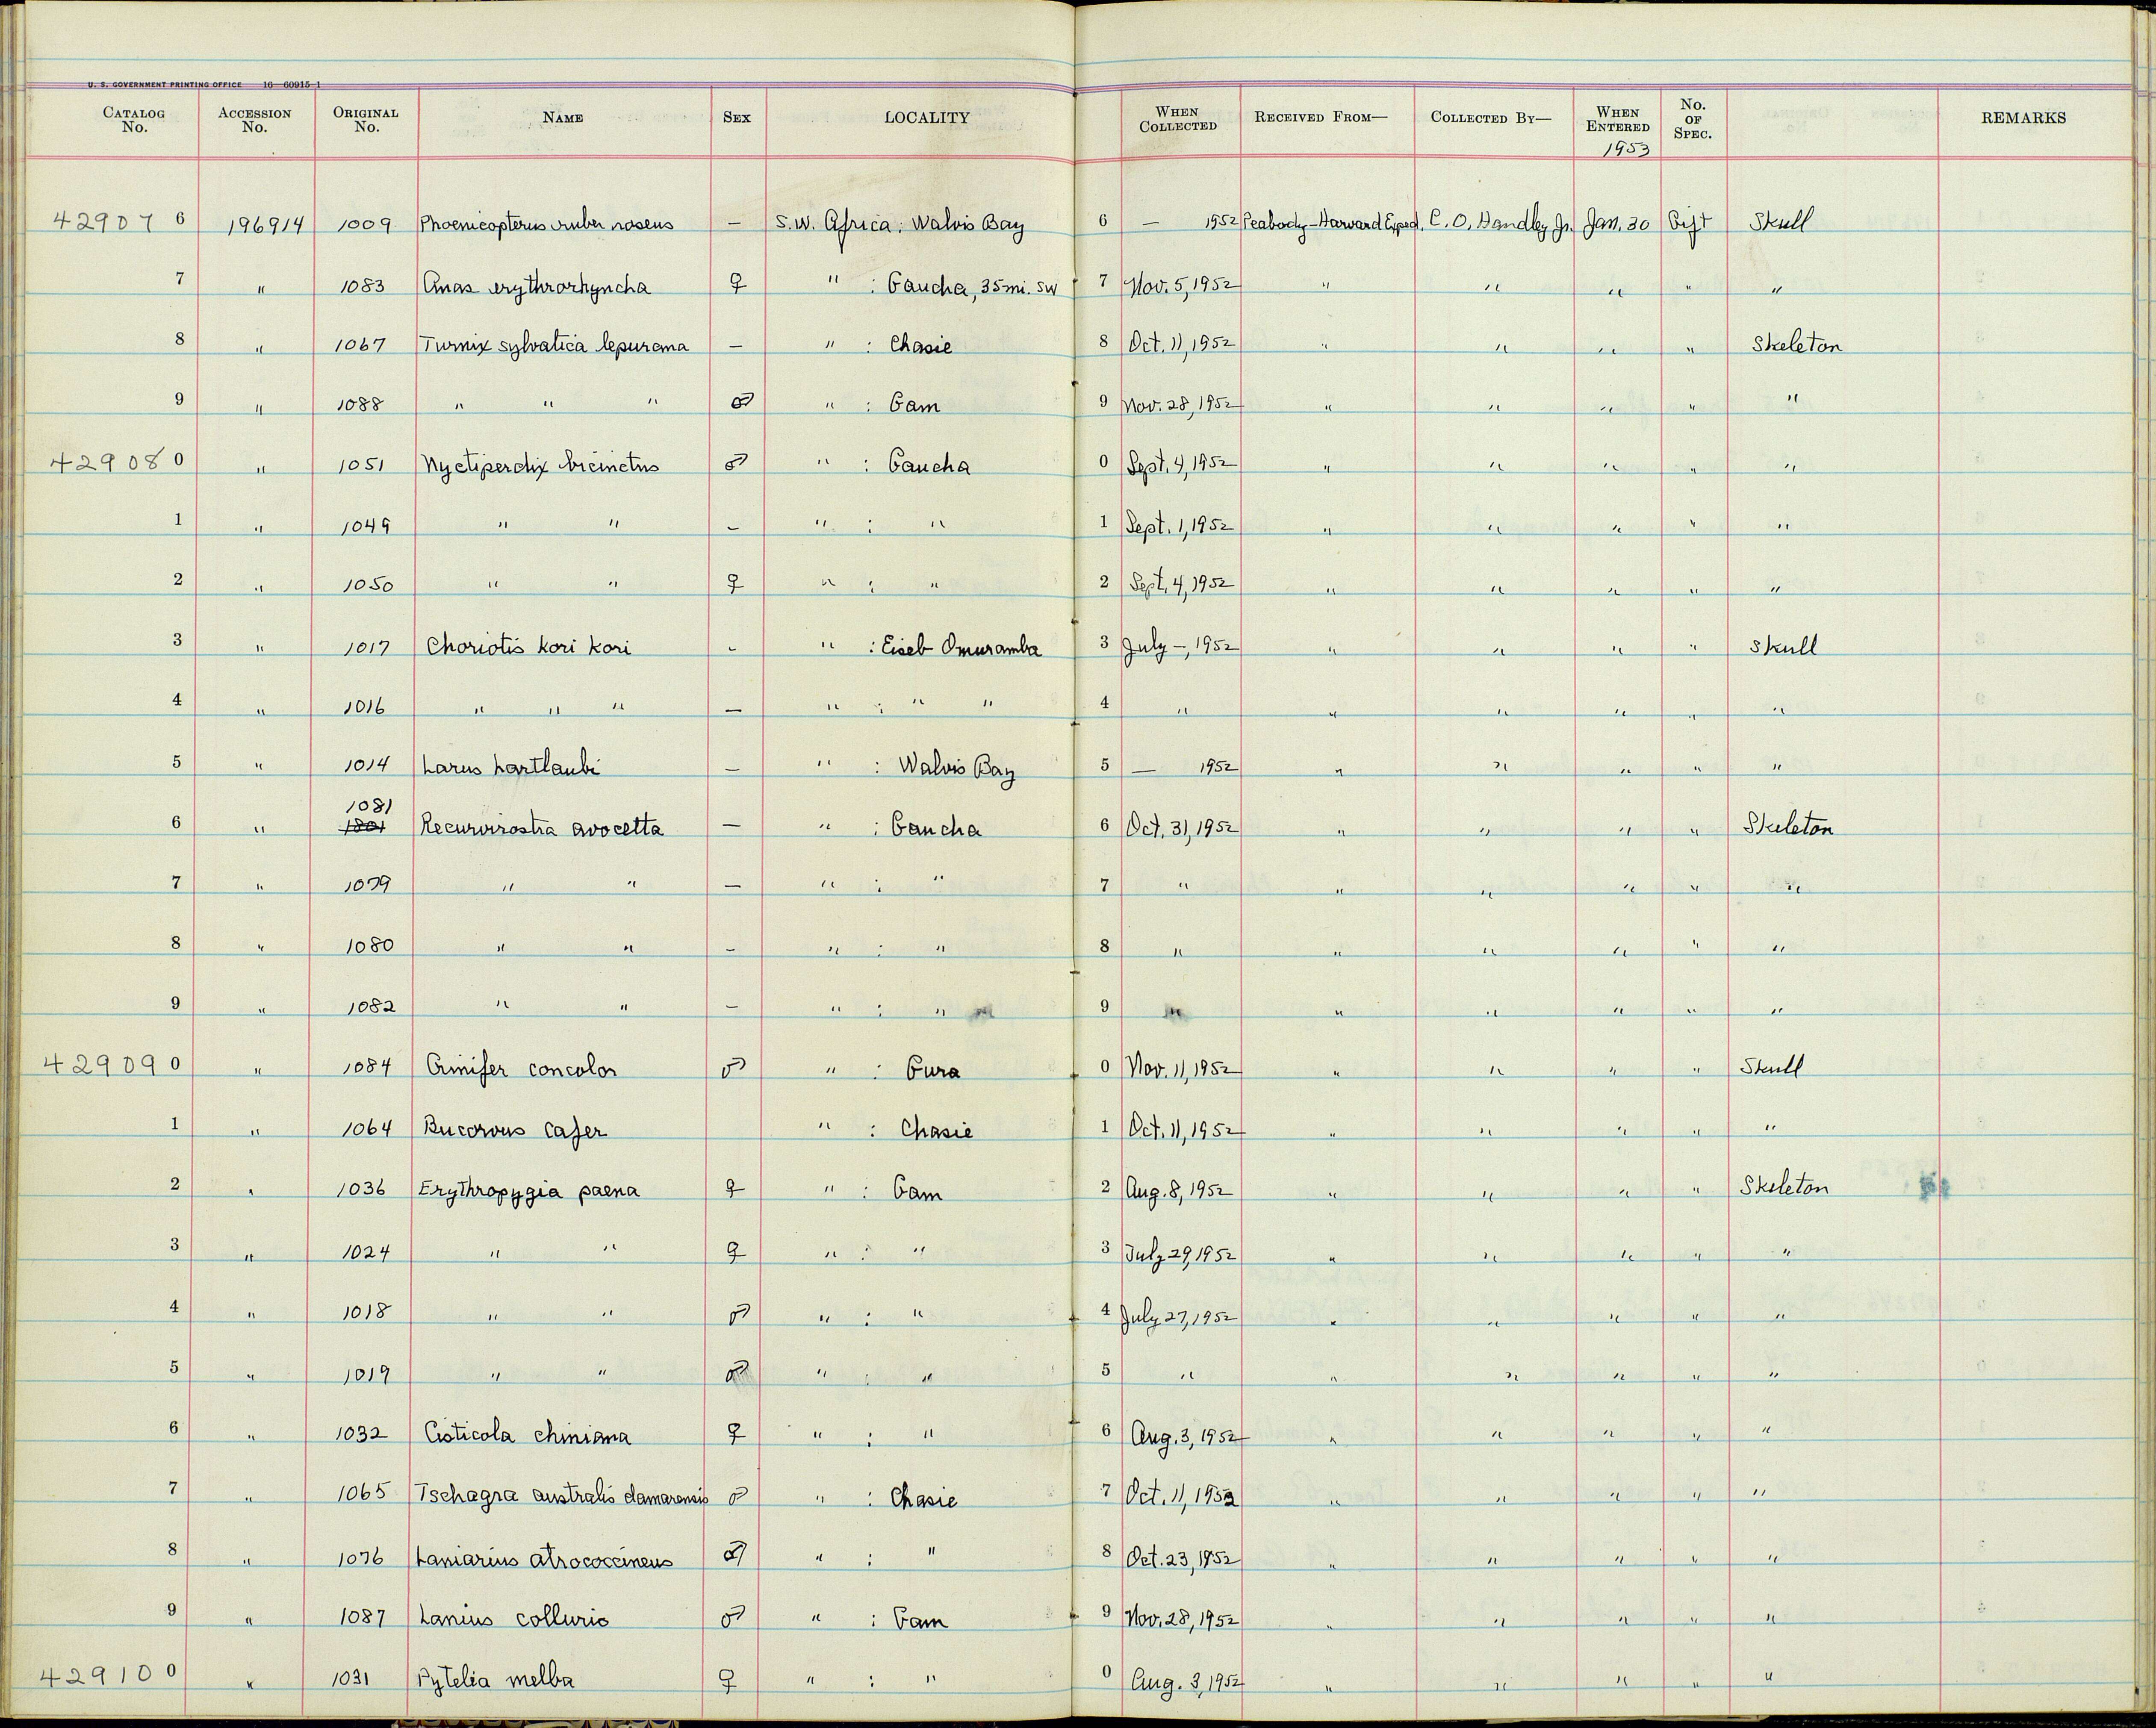 U. S. GOVERNMENT PRINTING OFFICE 16—60915-1
CATALOG No. ACCESSION No. ORIGINAL No. NAME SEX LOCALITY WHEN COLLECTED RECEIVED FROM— COLLECTED BY— WHEN ENTERED 1953 No. OF SPEC. REMARKS
429076 196914 1009 Phoenicopterus ruber roseus — S.W. Africa: Walvis Bay 6 — 1952 Peabody-Harvard Exped. C. O. Handley Jr. Jan. 30 Gift Skull
7 " 1083 Anas erythrorhyncha ♀ " : Gaucha, 35 mi. SW 7 Nov. 5, 1952 " " " " "
8 " 1067 Turnix sylvatica lepurana — " : Chasie 8 Oct. 11, 1952 " " " " Skeleton
9 " 1088 " " " ♂ " : Gam 9 Nov. 28, 1952 " " " " "
429080 " 1051 Nyctiperdix bicinctus ♂ " : Gaucha 0 Sept. 4, 1952 " " " " "
1 " 1049 " " — " : " 1 Sept. 1, 1952 " " " " "
2 " 1050 " " ♀ " : " 2 Sept. 4, 1952 " " " " "
3 " 1017 Choriotis kori kori - " : Eiseb Omuramba 3 July —, 1952 " " " " Skull
4 " 1016 " " " — " : " " 4 " " " " " "
5 " 1014 Larus hartlaubi — " : Walvis Bay 5 — 1952 " " " " "
6 " 1081 1801 Recurvirostra avocetta — " : Gaucha 6 Oct. 31, 1952 " " " " Skeleton
7 " 1079 " " — " : " 7 " " " " " "
8 " 1080 " " — " : " 8 " " " " " "
9 " 1082 " " — " : " 9 " " " " " "
429090 " 1084 Crinifer concolor ♂ " : Gura 0 Nov. 11, 1952 " " " " Skull
1 " 1064 Bucorvus cafer " : Chasie 1 Oct. 11, 1952 " " " " "
2 " 1036 Erythropygia paena ♀ " : Gam 2 Aug. 8, 1952 " " " " Skeleton
3 " 1024 " " ♀ " : " 3 July 29, 1952 " " " " "
4 " 1018 " " ♂ " : " 4 July 27, 1952 " " " " "
5 " 1019 " " ♂ " : " 5 " " " " " "
6 " 1032 Cisticola chiniana ♀ " : " 6 Aug. 3, 1952 " " " " "
7 " 1065 Tschagra australis damarensis ♂ " : Chasie 7 Oct. 11, 1952 " " " " "
8 " 1076 Laniarius atrococcineus ♂ " : " 8 Oct. 23, 1952 " " " " "
9 " 1087 Lanius collurio ♂ " : Gam 9 Nov. 28, 1952 " " " " "
429100 " 1031 Pytelia melba ♀ " : " 0 Aug. 3, 1952 " " " " "